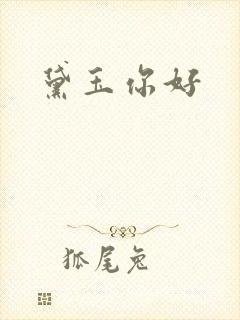 黛玉你好
狐尾兔